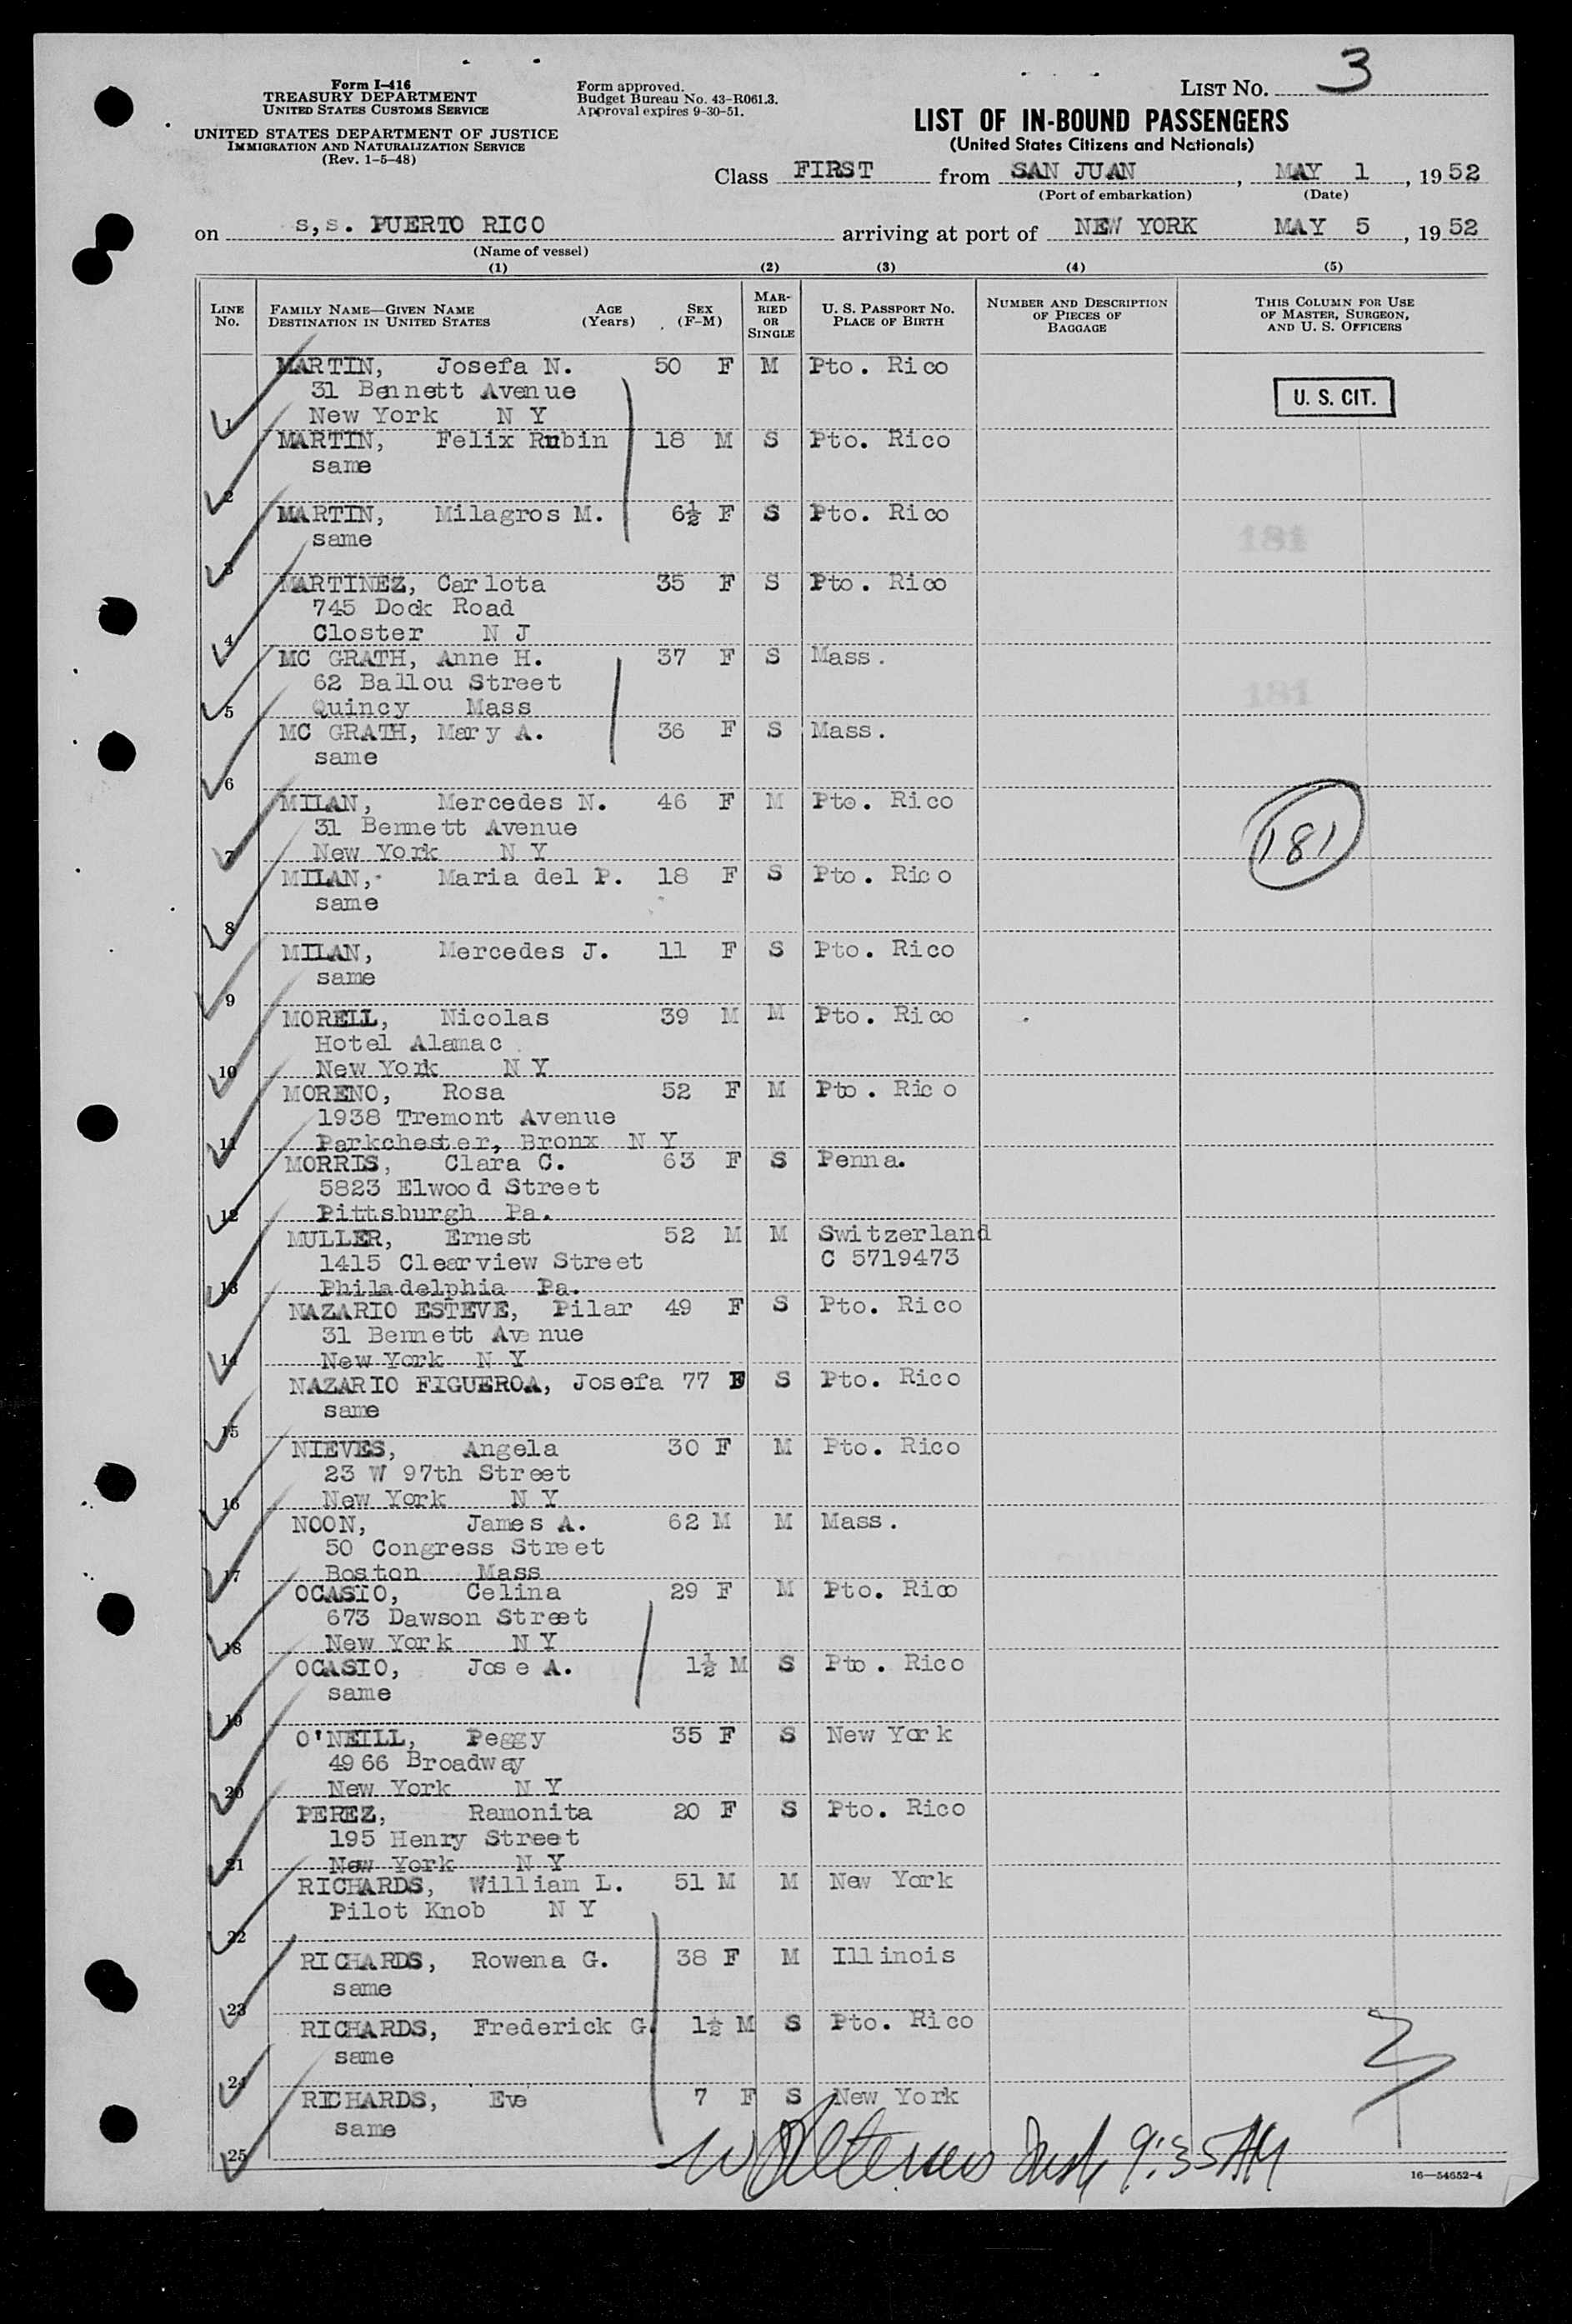 Form I-416
TREASURY DEPARTMENT
UNITED STATES CUSTOMS SERVICE
UNITED STATES DEPARTMENT OF JUSTICE
IMMIGRATION AND NATURALIZATION SERVICE
(Rev. 1-5-48)
Form approved.
Budget Bureau No. 43-R061.3.
Approval expires 9-30-51.
LIST NO. 3
LIST OF IN-BOUND PASSENGERS
(United States Citizens and Nationals)
Class FIRST from SAN JUAN, MAY 1, 1952
(Port of embarkation) (Date)
on s,s. PUERTO RICO arriving at port of NEW YORK MAY 5, 1952
(Name of vessel)
(1) (2) (3) (4) (5)
LINE No. FAMILY NAME—GIVEN NAME DESTINATION IN UNITED STATES AGE (Years) SEX (F-M) MARRIED OR SINGLE U. S. PASSPORT NO. PLACE OF BIRTH NUMBER AND DESCRIPTION OF PIECES OF BAGGAGE THIS COLUMN FOR USE OF MASTER, SURGEON, AND U. S. OFFICERS
MARTIN, Josefa N. 50 F M Pto. Rico
31 Bennett Avenue
U. S. CIT.
1 New York N Y
MARTIN, Felix Rubin 18 M S Pto. Rico
same
2
MARTIN, Milagros M. 6½ F S Pto. Rico
same
181
3
MARTINEZ, Carlota 35 F S Pto. Rico
745 Dock Road
4 Closter N J
MC GRATH, Anne H. 37 F S Mass.
62 Ballou Street
181
5 Quincy Mass
MC GRATH, Mary A. 36 F S Mass.
same
6
MILAN, Mercedes N. 46 F M Pto. Rico
31 Bennett Avenue
181
7 New York N Y
MILAN, Maria del P. 18 F S Pto. Rico
same
8
MILAN, Mercedes J. 11 F S Pto. Rico
same
9
MORELL, Nicolas 39 M M Pto. Rico
Hotel Alamac
10 New York N Y
MORENO, Rosa 52 F M Pto. Rico
1938 Tremont Avenue
11 Parkchester, Bronx N Y
MORRIS, Clara C. 63 F S Penna.
5823 Elwood Street
12 Pittsburgh Pa.
MULLER, Ernest 52 M M Switzerland
1415 Clearview Street C 5719473
13 Philadelphia Pa.
NAZARIO ESTEVE, Pilar 49 F S Pto. Rico
31 Bennett Avenue
14 New York N Y
NAZARIO FIGUEROA, Josefa 77 F S Pto. Rico
same
15
NIEVES, Angela 30 F M Pto. Rico
23 W 97th Street
16 New York N Y
NOON, James A. 62 M M Mass.
50 Congress Street
17 Boston Mass
OCASIO, Celina 29 F M Pto. Rico
673 Dawson Street
18 New York N Y
OCASIO, Jose A. 1½ M S Pto. Rico
same
19
O'NEILL, Peggy 35 F S New York
4966 Broadway
20 New York N Y
PEREZ, Ramonita 20 F S Pto. Rico
195 Henry Street
21 New York N Y
RICHARDS, William L. 51 M M New York
Pilot Knob N Y
22
RICHARDS, Rowena G. 38 F M Illinois
same
23
RICHARDS, Frederick G. 1½ M S Pto. Rico
same
24
RICHARDS, Eve 7 F S New York
same
25
9:35 AM
16—54652-4